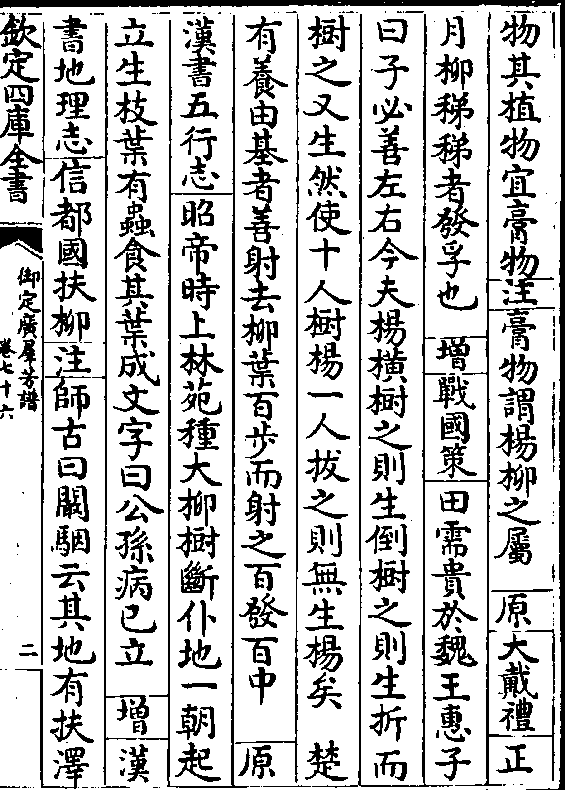 物其植物宜膏物注膏物謂楊柳之屬　原　大戴禮　正
月柳稊稊者發孚也　增　戰國策　田需貴於魏王惠子
曰子必善左右今夫楊橫樹之則生倒樹之則生折而
樹之又生然使十人樹楊一人拔之則無生楊矣　楚
有養由基者善射去柳葉百步而射之百發百中　原
漢書五行志　昭帝時上林苑種大柳樹斷仆地一朝起
立生枝葉有蟲食其葉成文字曰公孫病已立　增　漢
書地理志　信都國扶柳　注　師古曰闞駰云其地有扶澤
欽定四庫全書
御定廣羣芳譜
卷七十六
二